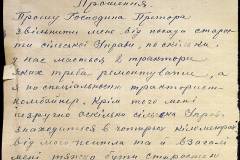 Прошення
Прошу Господина Претора
звільнити мене від посади старос-
ти сільської Управи, оскільки
у нас маються 4 трактори
яких треба ремонтувати, а
я по спеціальности тракторист-
комбайнер. Крім того мені
незручно оскільки сільська Управ.
знаходиться в чотирьох кілометрах
від мого житла та й взагалі
мені тяжко бути старостою